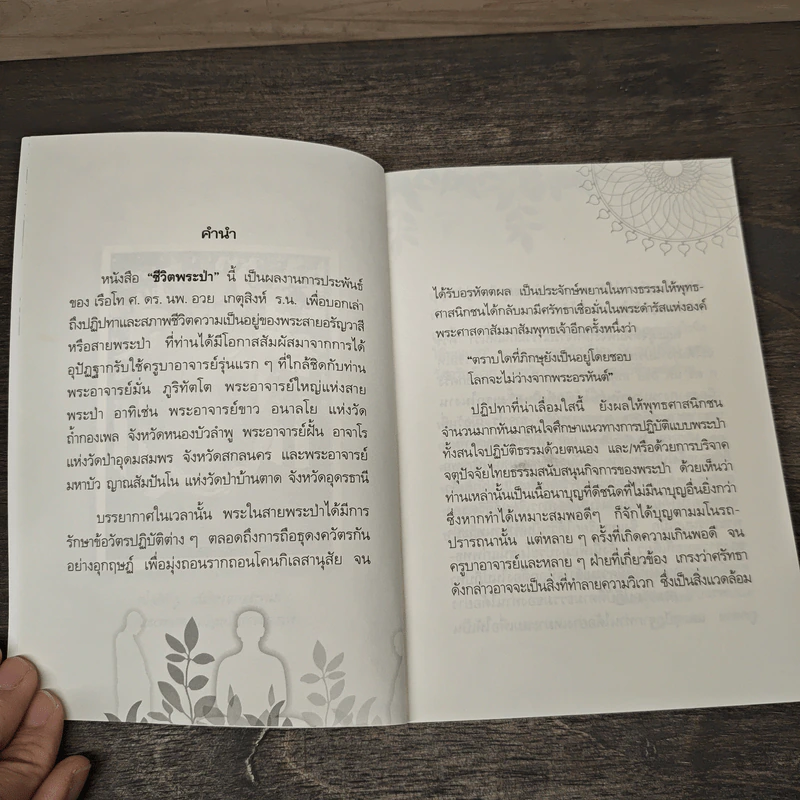 คำนำ
หนังสือ “ชีวิตพระป่า” นี้ เป็นผลงานการประพันธ์
ของ เรือโท ศ. ดร. นพ. อวย เกตุสิงห์ ร.น. เพื่อบอกเล่า
ถึงปฏิปทาและสภาพชีวิตความเป็นอยู่ของพระสายอรัญวาสี
หรือสายพระป่า ที่ท่านได้มีโอกาสสัมผัสมาจากการได้
อุปัฏฐากรับใช้ครูบาอาจารย์รุ่นแรก ๆ ที่ใกล้ชิดกับท่าน
พระอาจารย์มั่น ภูริทัตโต พระอาจารย์ใหญ่แห่งสาย
พระป่า อาทิเช่น พระอาจารย์ขาว อนาลโย แห่งวัด
ถ้ำกองเพล จังหวัดหนองบัวลำพู พระอาจารย์ฝั้น อาจาโร
แห่งวัดป่าอุดมสมพร จังหวัดสกลนคร และพระอาจารย์
มหาบัว ญาณสัมปันโน แห่งวัดป่าบ้านตาด จังหวัดอุดรธานี
บรรยากาศในเวลานั้น พระในสายพระป่าได้มีการ
รักษาข้อวัตรปฏิบัติต่าง ๆ ตลอดถึงการถือธุดงควัตรกัน
อย่างอุกฤษฏ์ เพื่อมุ่งถอนรากถอนโคนกิเลสานุสัย จน
ได้รับอรหัตตผล เป็นประจักษ์พยานในทางธรรมให้พุทธ-
ศาสนิกชนได้กลับมามีศรัทธาเชื่อมั่นในพระดำรัสแห่งองค์
พระศาสดาสัมมาสัมพุทธเจ้าอีกครั้งหนึ่งว่า
“ตราบใดที่ภิกษุยังเป็นอยู่โดยชอบ
โลกจะไม่ว่างจากพระอรหันต์”
ปฏิปทาที่น่าเลื่อมใสนี้ ยังผลให้พุทธศาสนิกชน
จำนวนมากหันมาสนใจศึกษาแนวทางการปฏิบัติแบบพระป่า
ทั้งสนใจปฏิบัติธรรมด้วยตนเอง และ/หรือด้วยการบริจาค
จตุปัจจัยไทยธรรมสนับสนุนกิจการของพระป่า ด้วยเห็นว่า
ท่านเหล่านั้นเป็นเนื้อนาบุญที่ดีชนิดที่ไม่มีนาบุญอื่นยิ่งกว่า
ซึ่งหากทำได้เหมาะสมพอดีๆ ก็จักได้บุญตามมโนรถ-
ปรารถนานั้น แต่หลาย ๆ ครั้งที่เกิดความเกินพอดี จน
ครูบาอาจารย์และหลาย ๆ ฝ่ายที่เกี่ยวข้อง เกรงว่าศรัทธา
ดังกล่าวอาจจะเป็นสิ่งที่ทำลายความวิเวก ซึ่งเป็นสิ่งแวดล้อม